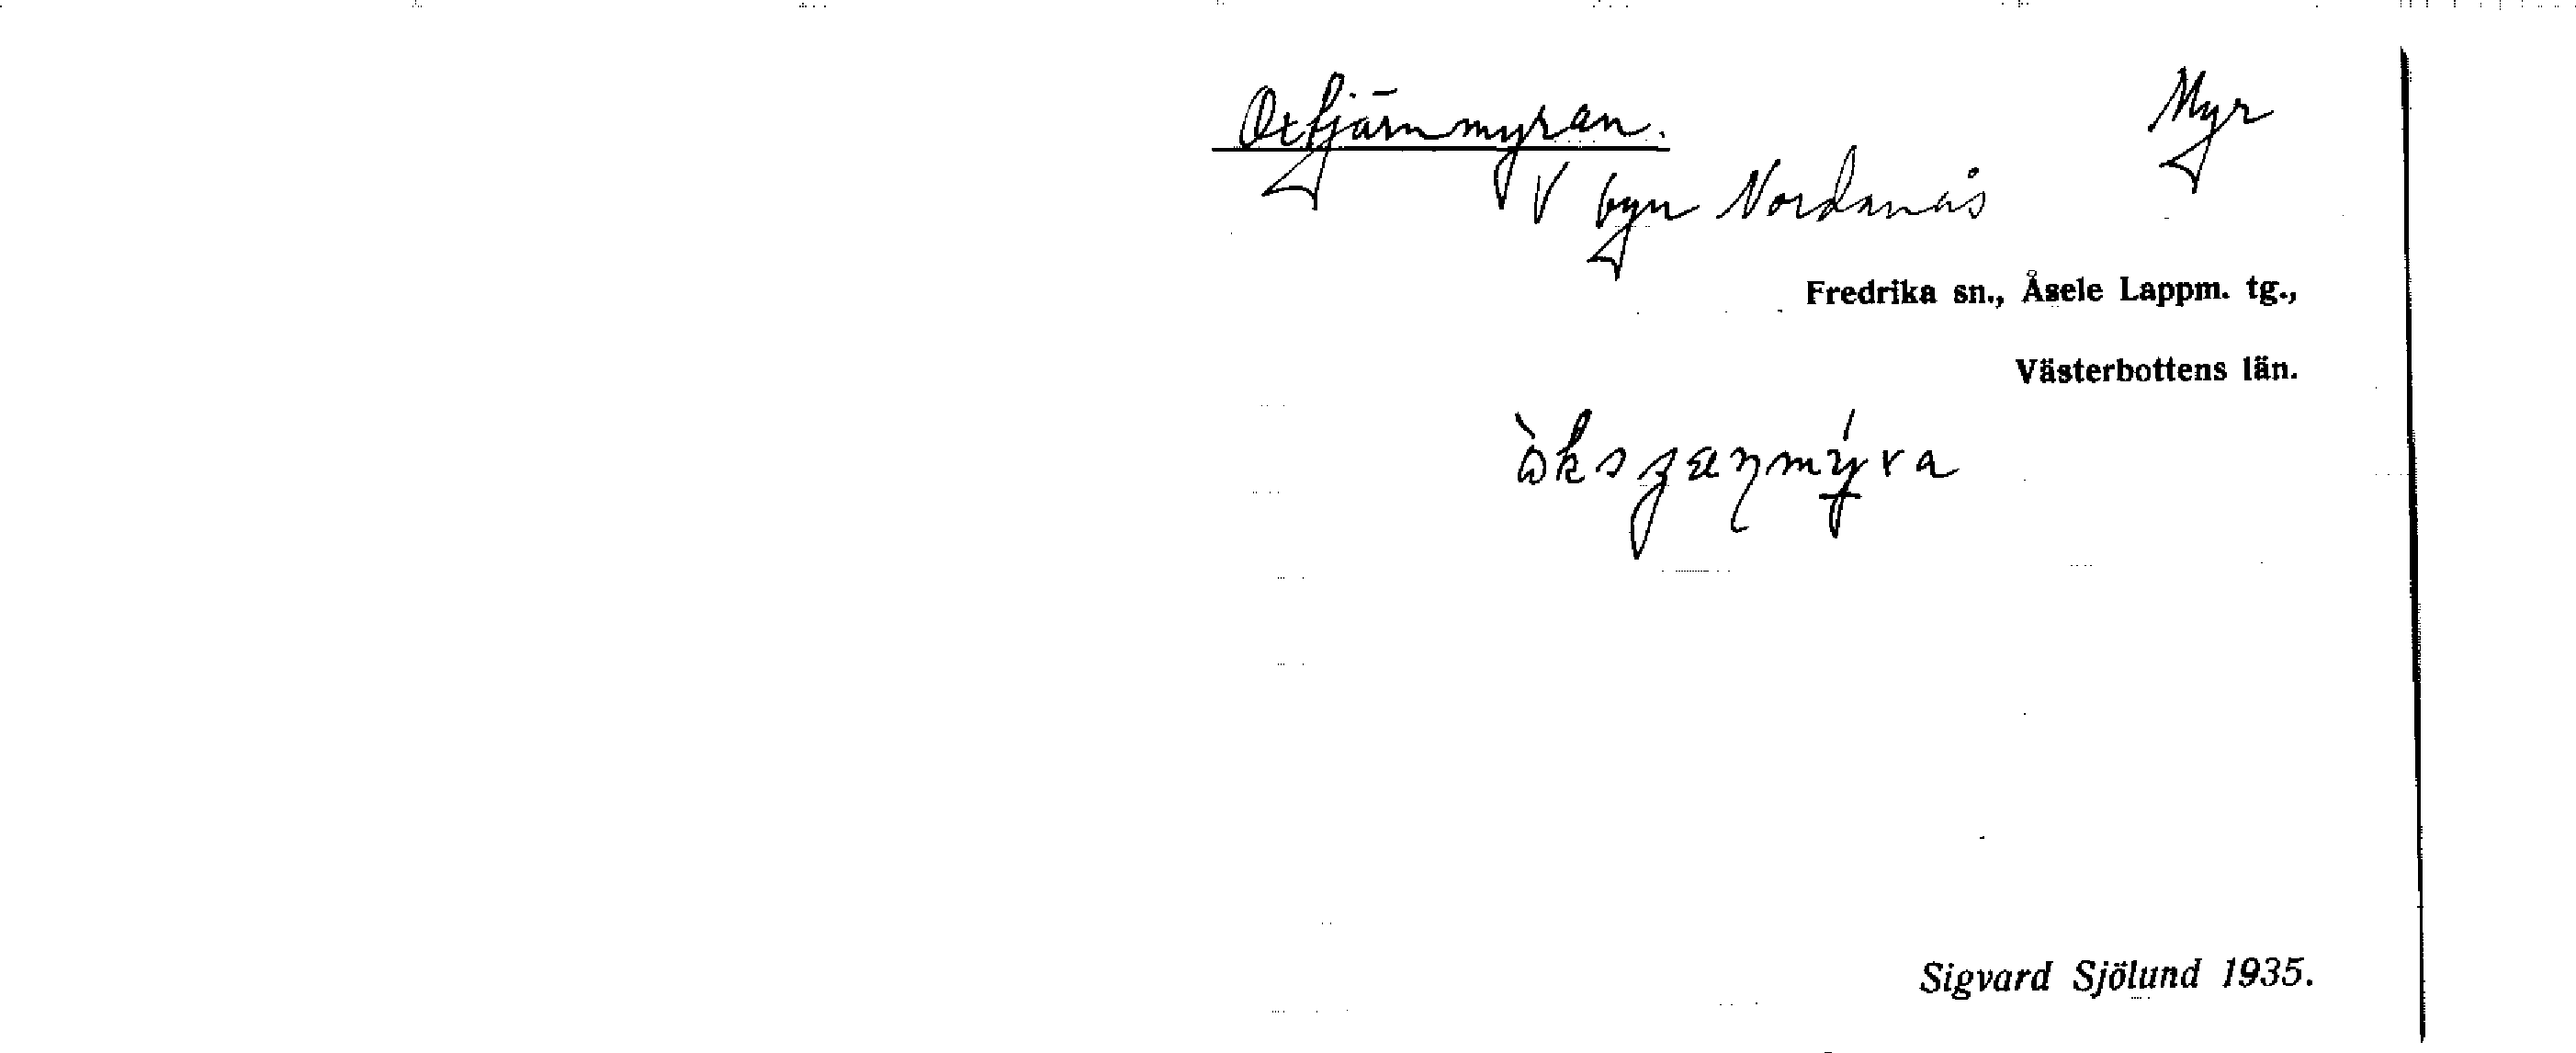 Oxtjärnmyran. Myr
V byn Nordanås
Fredrika sn., Åsele Lappm. tg.,
Västerbottens län.
Sigvard Sjölund 1935.